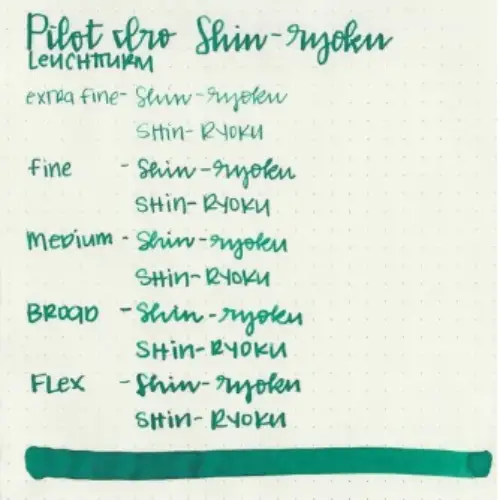 Pilot iro Shin-ryoku
LEUCHTTURM
extra fine - Shin-ryoku
SHin-RYOKU
fine - Shin-ryoku
SHin-RYOKU
MEDIUM - Shin-ryoku
SHin-RYOKU
BROAD - Shin-ryoku
SHin-RYOKU
FLEX - Shin-ryoku
SHin-RYOKU